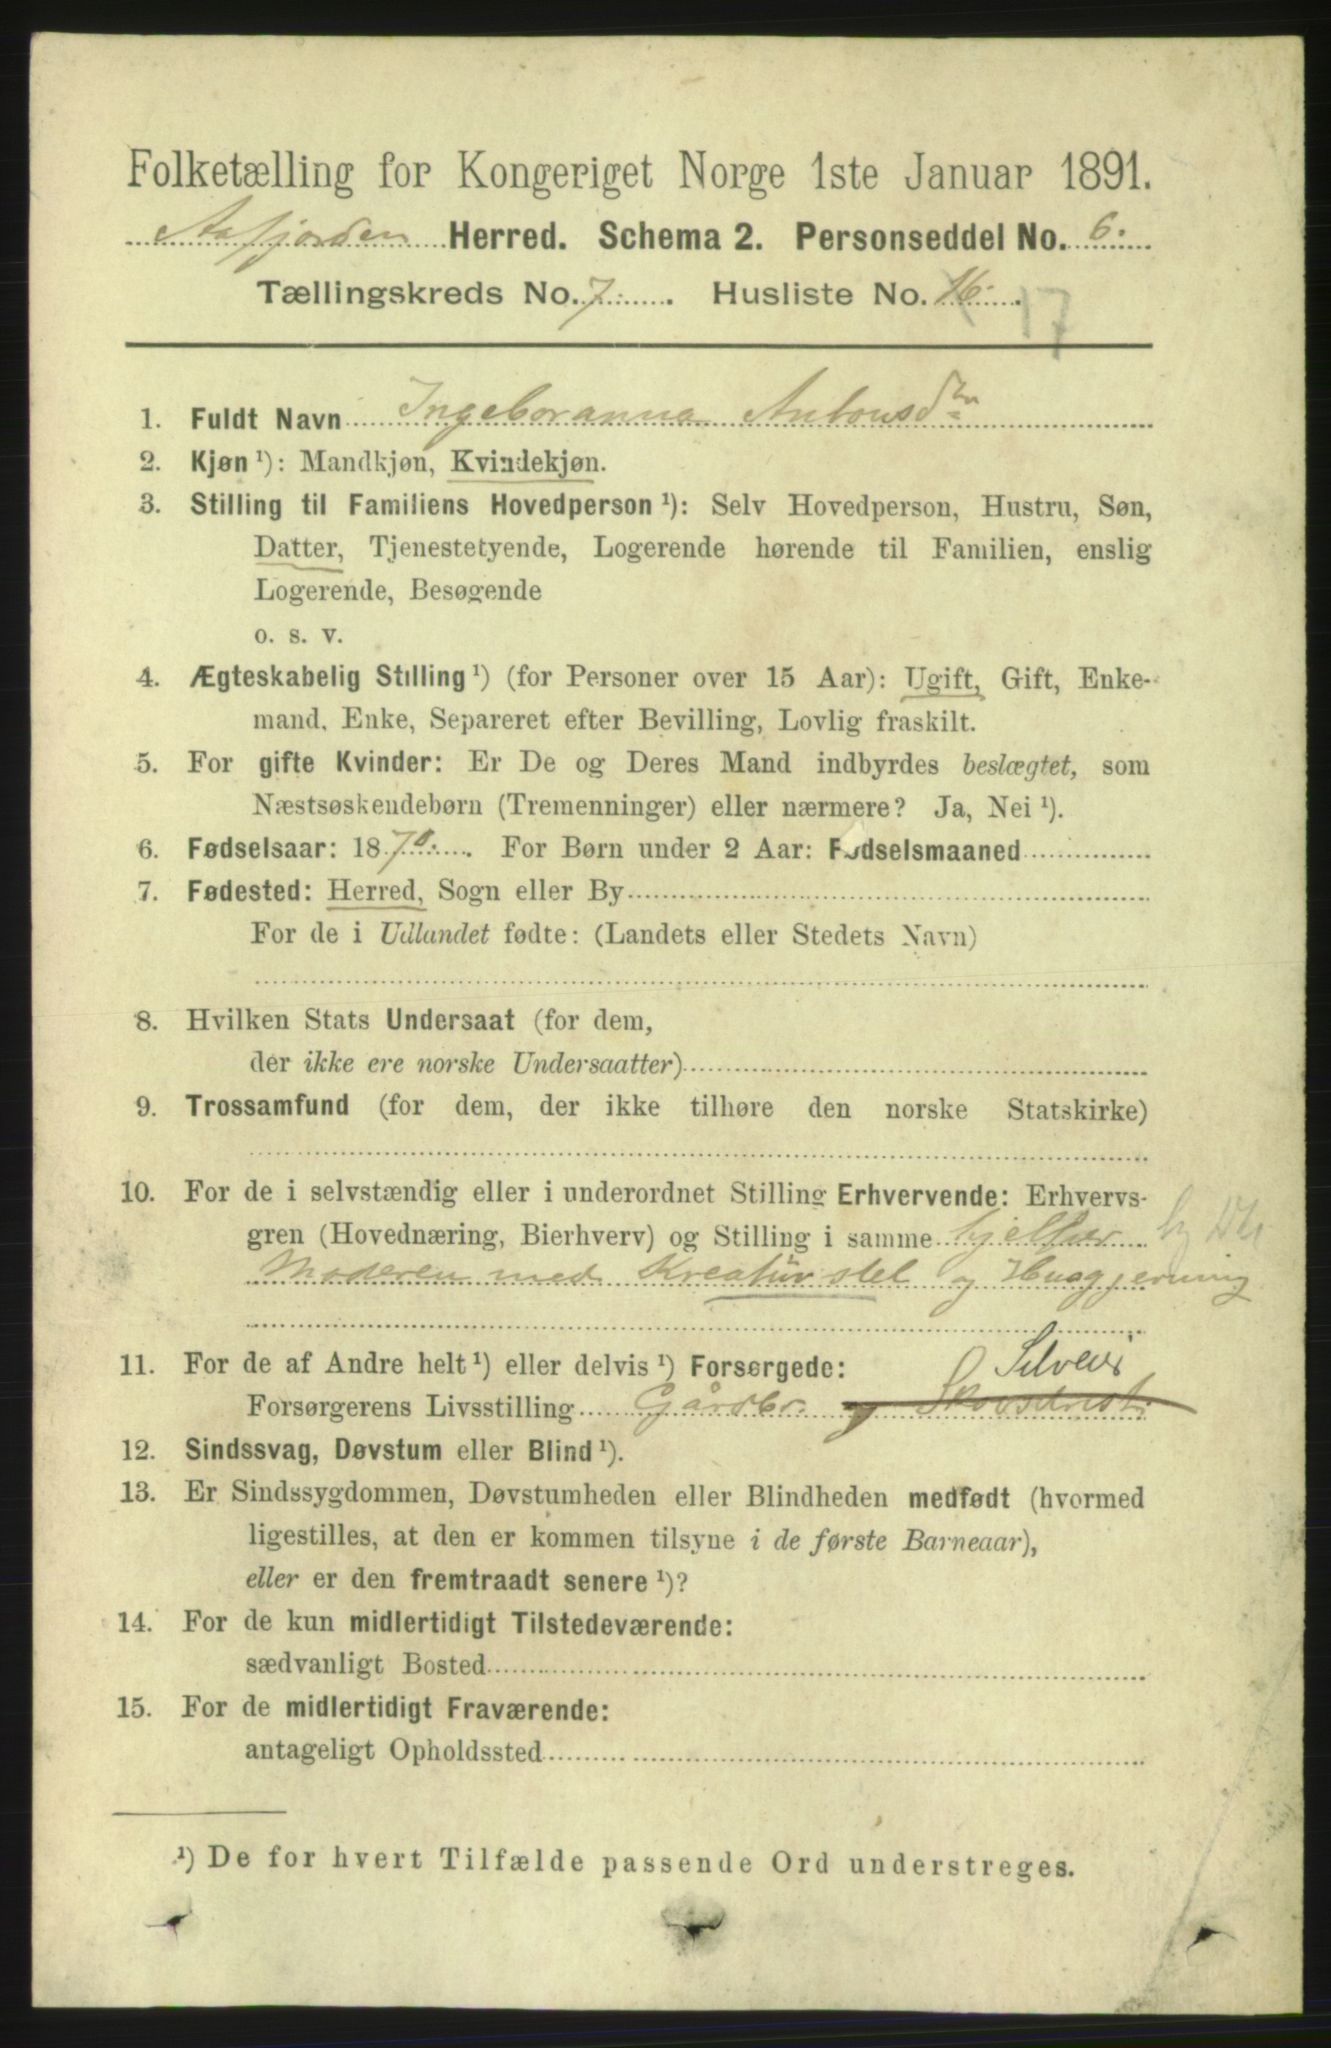 Folketælling for Kongeriget Norge 1ste Januar 1891.
Aafjorden Herred. Schema 2. Personseddel No. 6.
Tællingskreds No. 7. Husliste No. 16. 17
1. Fuldt Navn Ingeboranna Antonsdtr
2. Kjøn ¹): Mandkjøn, Kvindekjøn.
3. Stilling til Familiens Hovedperson ¹): Selv Hovedperson, Hustru, Søn,
Datter, Tjenestetyende, Logerende hørende til Familien, enslig
Logerende, Besøgende
o. s. v.
4. Ægteskabelig Stilling ¹) (for Personer over 15 Aar): Ugift, Gift, Enke-
mand, Enke, Separeret efter Bevilling, Lovlig fraskilt.
5. For gifte Kvinder: Er De og Deres Mand indbyrdes beslægtet, som
Næstsøskendebørn (Tremenninger) eller nærmere? Ja, Nei ¹).
6. Fødselsaar: 1870. For Børn under 2 Aar: Fødselsmaaned
7. Fødested: Herred, Sogn eller By
For de i Udlandet fødte: (Landets eller Stedets Navn)
8. Hvilken Stats Undersaat (for dem,
der ikke ere norske Undersaatter)
9. Trossamfund (for dem, der ikke tilhøre den norske Statskirke)
10. For de i selvstændig eller i underordnet Stilling Erhvervende: Erhvervs-
gren (Hovednæring, Bierhverv) og Stilling i samme hjelper
Moderen med Kreaturstel og Husgjerning
11. For de af Andre helt ¹) eller delvis ¹) Forsørgede:
Forsørgerens Livsstilling Gårdbr. og Skovsdrift.
12. Sindssvag, Døvstum eller Blind ¹).
13. Er Sindssygdommen, Døvstumheden eller Blindheden medfødt (hvormed
ligestilles, at den er kommen tilsyne i de første Barneaar),
eller er den fremtraadt senere ¹)?
14. For de kun midlertidigt Tilstedeværende:
sædvanligt Bosted
15. For de midlertidigt Fraværende:
antageligt Opholdssted
¹) De for hvert Tilfælde passende Ord understreges.